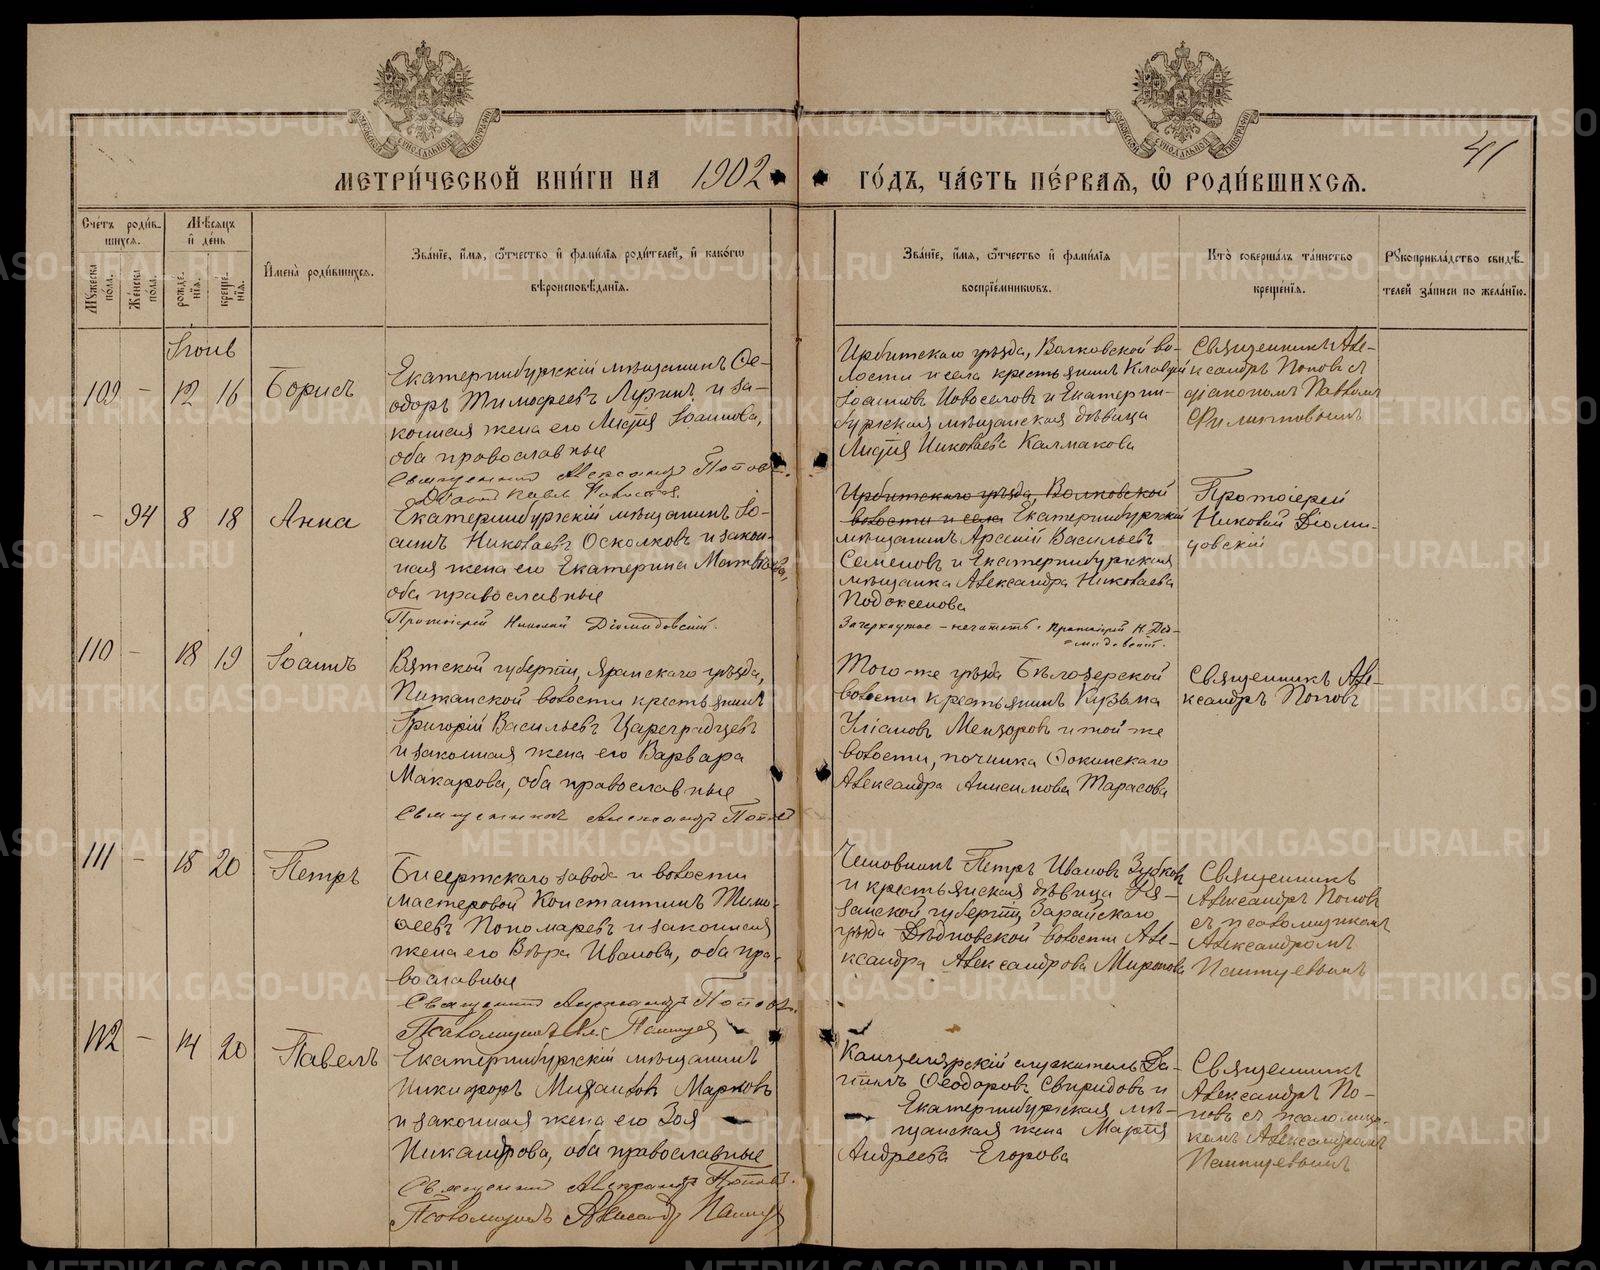 МЕТРИ́ЧЕСКОЙ КНИ́ГИ НА 1902 ГО́ДЪ, ЧА́СТЬ ПЕ́РВАЯ, Ѡ҆ РОДИ́ВШИХСЯ.
41
Сче́тъ роди́в-
шихся.
Мѣ́сяцъ
и҆ де́нь
Мꙋ́жеска
по́ла.
Же́нска
по́ла.
рожде́-
нїя.
креще́-
нїя.
И҆мена̀ роди́вшихся.
Зва́нїе, и҆́мя, ѻ҆́тчество и҆ фами́лїя роди́телей, и҆ како́гѡ
вѣроисповѣ́данїя.
Зва́нїе, и҆́мя, ѻ҆́тчество и҆ фами́лїя
воспрїе́мникѡвъ.
Кто̀ соверша́лъ та́инство
креще́нїя.
Рꙋкоприкла́дство свидѣ́-
телей за́писи по жела́нїю.
Іюнь
109 – 12 16 Борисъ
Екатеринбургскій мѣщанинъ Ѳе-
одоръ Тимоѳеевъ Лузинъ и за-
конная жена его Лидія Іоаннова,
оба православные
Священникъ Александръ Поповъ.
Діаконъ Павелъ
Ирбитскаго уѣзда, Волковской во-
лости и села крестьянинъ Клавдій
Іоанновъ Новоселовъ и Екатерин-
бургская мѣщанская дѣвица
Лидія Николаева Калмакова
Священникъ Але-
ксандръ Поповъ съ
діакономъ Павломъ
Филитовымъ
– 94 8 18 Анна
Екатеринбургскій мѣщанинъ Іо-
аннъ Николаевъ Осколковъ и закон-
ная жена его Екатерина Матвѣева,
оба православные
Протоіерей Николай Діомидовскій.
Ирбитскаго уѣзда, Волковской
волости и села Екатеринбургскій
мѣщанинъ Арсеній Васильевъ
Семеновъ и Екатеринбургская
мѣщанка Александра Николаева
Подоксенова
Зачеркнутое – нечитать. Протоіерей Н. Діо-
мидовскій.
Протоіерей
Николай Діоми-
довскій
110 – 18 19 Іоаннъ
Вятской губерніи, Яранскаго уѣзда,
Пижанской волости крестьянинъ
Григорій Васильевъ Цареградцевъ
и законная жена его Варвара
Макарова, оба православные
Священникъ Александръ Поповъ
Того-же уѣзда Бѣлозерской
волости крестьянинъ Кузьма
Уліановъ Мендоровъ и той же
волости, починка
Александра Анисимова Тарасова
Священникъ Але-
ксандръ Поповъ
111 – 18 20 Петръ
Бисертскаго завода и волости
мастеровой Константинъ Тимо-
ѳеевъ Пономаревъ и законная
жена его Вѣра Иванова, оба пра-
вославные
Священникъ Александръ Поповъ.
Псаломщикъ Ал.
Чиновникъ Петръ Ивановъ Зубковъ
и крестьянская дѣвица Ря-
занской губерніи, Зарайскаго
уѣзда Дѣдновской волости Але-
ксандра Александрова Миронова
Священникъ
Александръ Поповъ
съ псаломщикомъ
Александромъ
112 – 14 20 Павелъ
Екатеринбургскій мѣщанинъ
Никифоръ Михаиловъ Марковъ
и законная жена его Зоя
Никандрова, оба православные
Священникъ Александръ Поповъ.
Псаломщикъ Александръ
Канцелярскій служитель Да-
ніилъ Ѳеодоровъ Свиридовъ и
Екатеринбургская мѣ-
щанская жена Марія
Андреева Егорова
Священникъ
Александръ По-
повъ съ псаломщи-
комъ Александромъ
METRIKI.GASO-URAL.RU